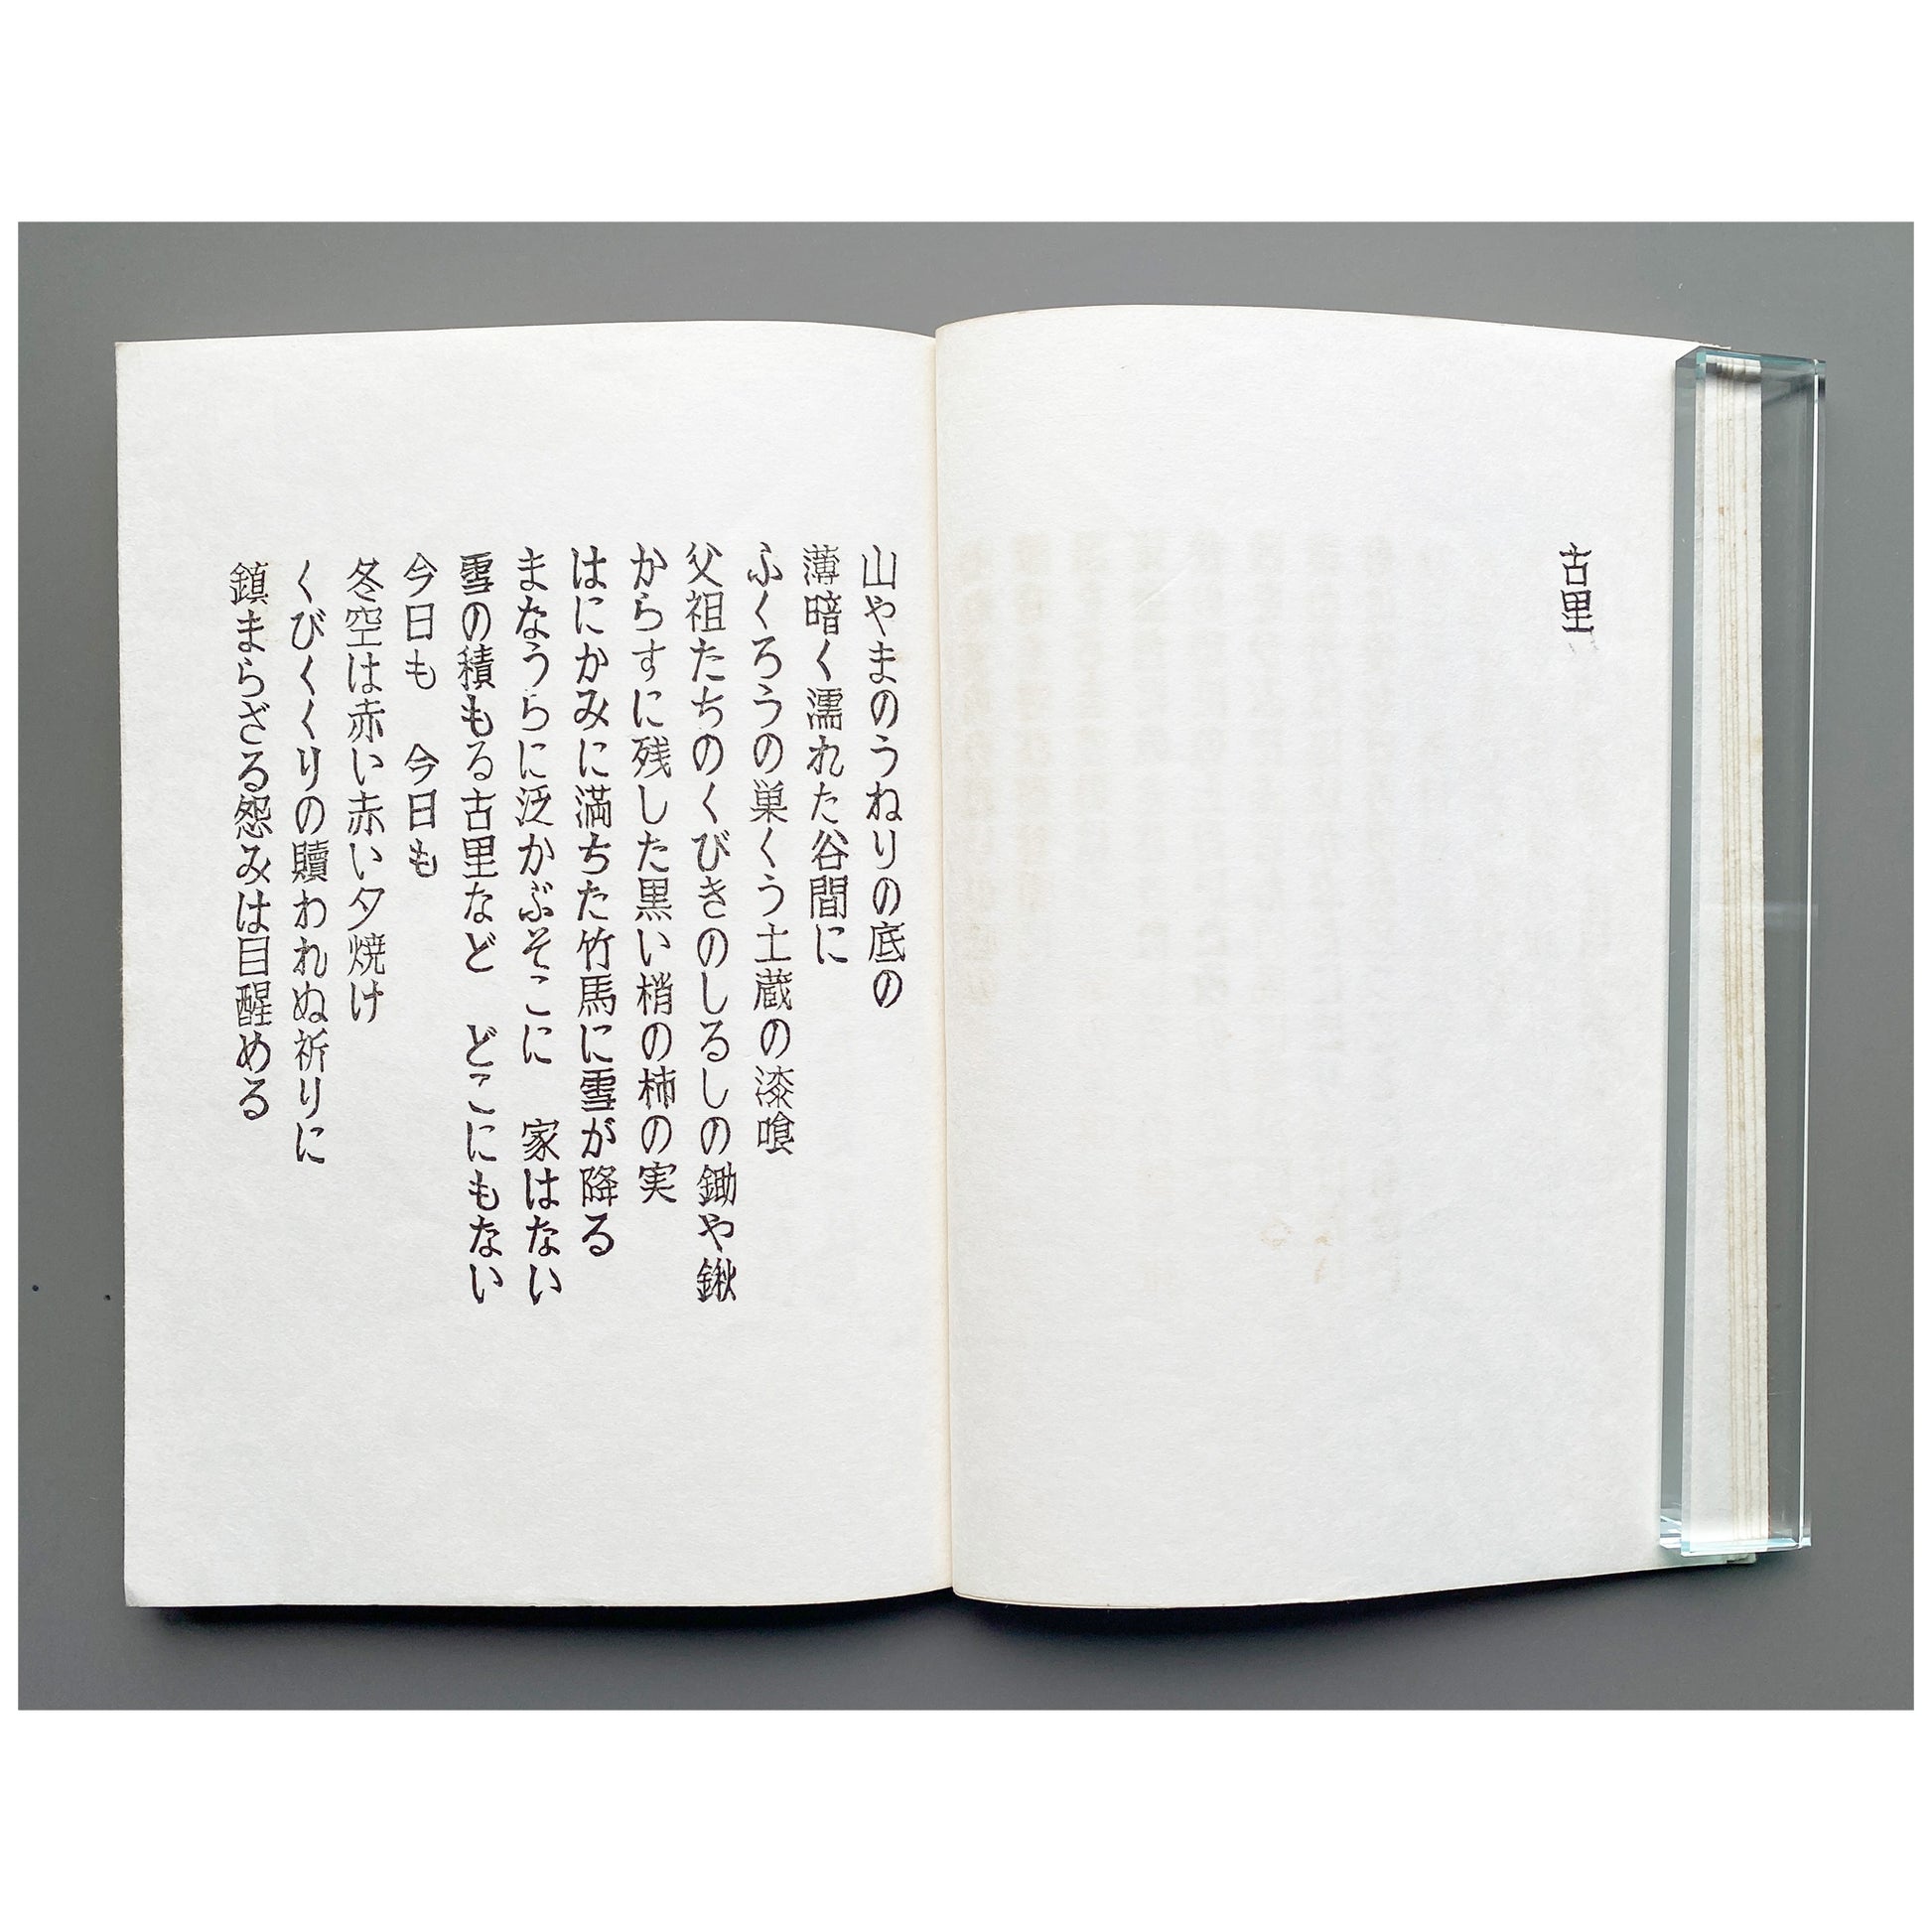 古里
山やまのうねりの底の
薄暗く濡れた谷間に
ふくろうの巣くう土蔵の漆喰
父祖たちのくびきのしるしの鋤や鍬
からすに残した黒い梢の柿の実
はにかみに満ちた竹馬に雪が降る
まなうらに泛かぶそこに　家はない
雪の積もる古里など　どこにもない
今日も　今日も
冬空は赤い赤い夕焼け
くびくくりの贖われぬ祈りに
鎮まらざる怨みは目醒める